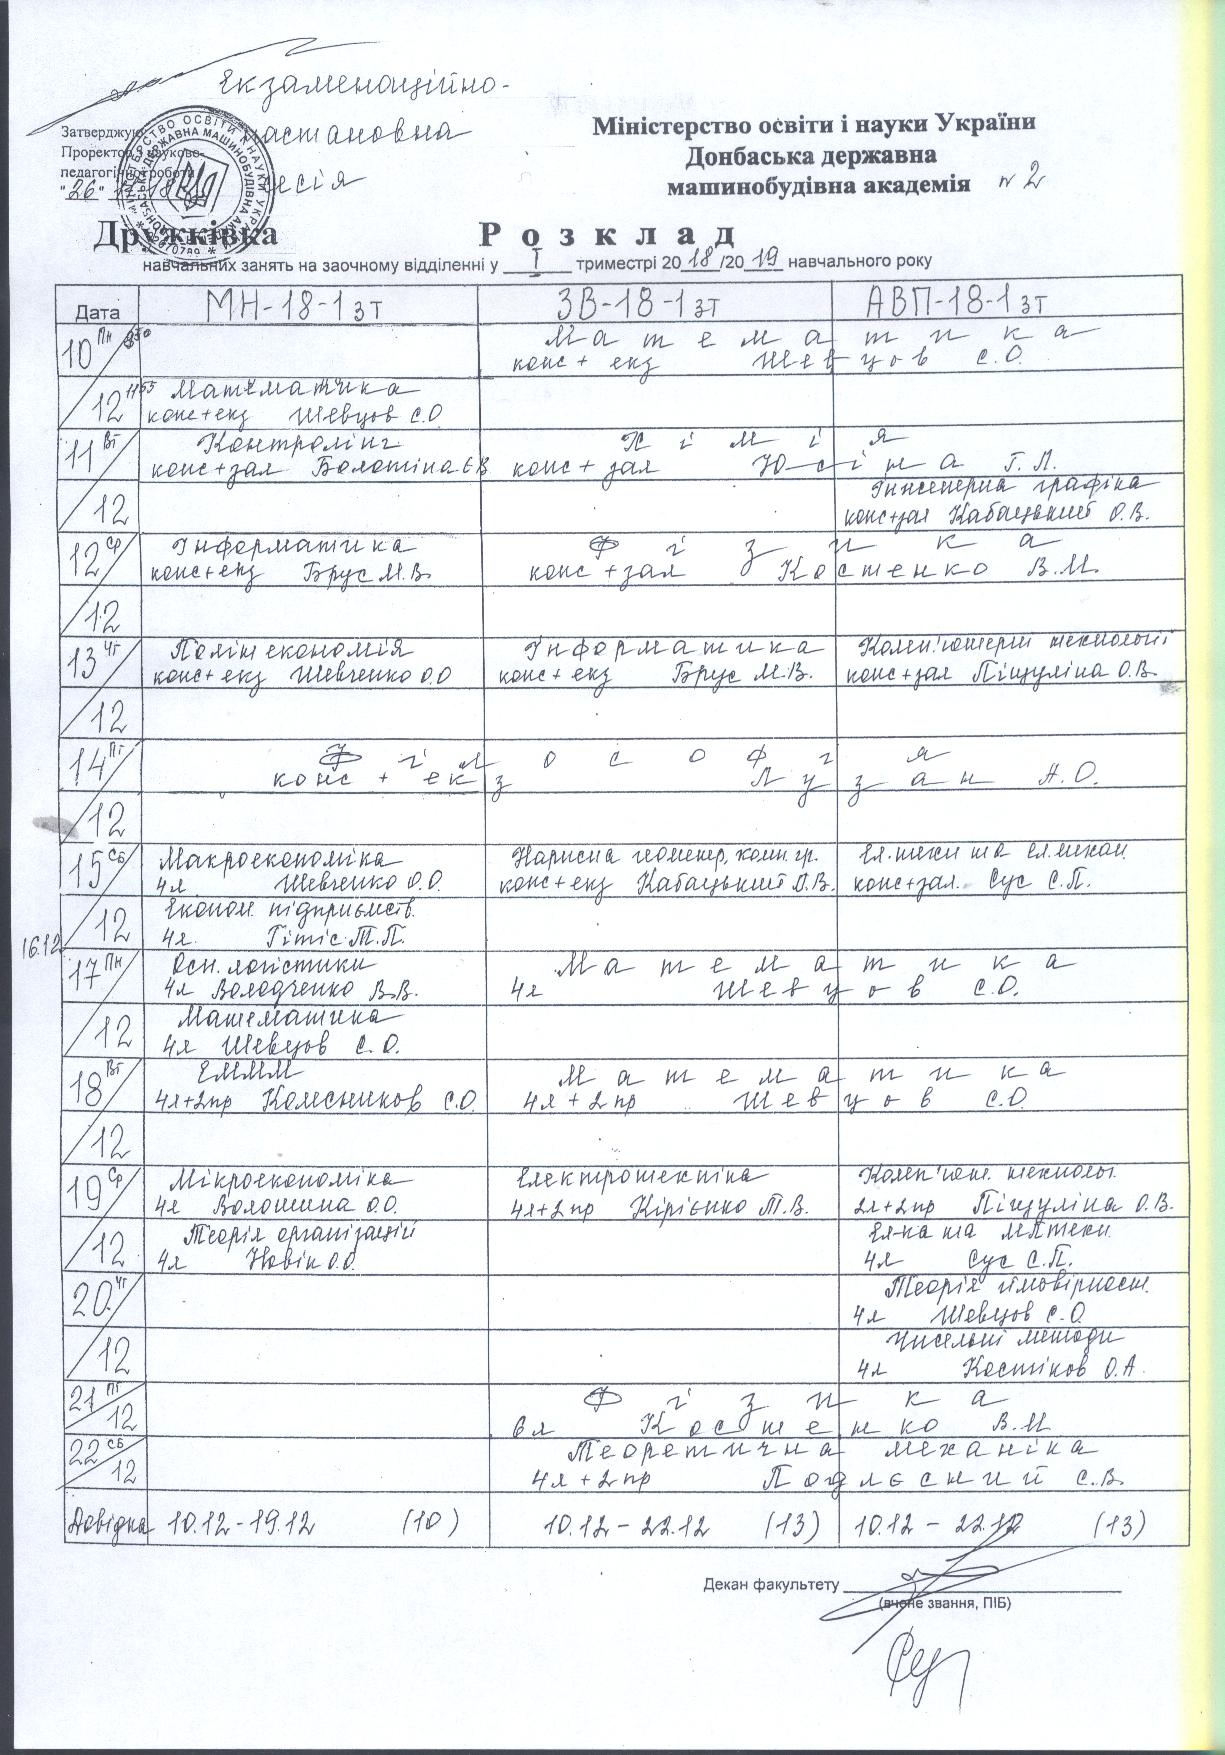 Екзаменаційно-
Затверджую настановна
Проректор з науково-
педагогічної роботи сесія
"26"
Міністерство освіти і науки України
Донбаська державна
машинобудівна академія № 2
Дружківка Розклад
навчальних занять на заочному відділенні у I триместрі 2018/2019 навчального року
Дата МН-18-1зт ЗВ-18-1зт АВП-18-1зт
10 Пн Математика
конс + екз Шевцов С.О.
12 11 55 Математика
конс+екз Шевцов С.О.
11 Вт Контролінг Хімія
конс+зал Болотіна Є.В. конс + зал Юсіна Г.Л.
12 Інженерна графіка
конс+зал Кабацький О.В.
12 Ср Інформатика Фізика
конс+екз Брус М.В. конс+зал Костенко В.М.
12
13 Чт Політекономія Інформатика Комп'ютерні технології
конс+екз Шевченко О.О конс+екз Брус М.В. конс+зал Піщуліна О.В.
12
14 Пт Філософія
конс + екз Лузан А.О.
12
15 Сб Макроекономіка Нарисна геометр, комп.гр. Ел.техн та ел.механ.
4л Шевченко О.О. конс+екз Кабацький О.В. конс+зал. Сус С.П.
12 Економ. підприємств.
4л. Гітіс Т.П.
16.12
17 Пн Осн. логістики Математика
4л Володченко В.В. 4л Шевцов С.О.
12 Математика
4л Шевцов С.О.
18 Вт ЕММM Математика
4л+2пр Колесников С.О. 4л + 2пр Шевцов С.О.
12
19 Ср Мікроекономіка Електротехніка Комп'ют. технолог.
4л Волошина О.О. 4л+2пр Кірієнко Т.В. 2л+2пр Піщуліна О.В.
12 Теорія організацій Ел-ка та МПтехн.
4л Новік О.О. 4л Сус С.П.
20 Чт Теорія ймовірност.
4л Шевцов С.О.
12 Чисельні методи
4л Костіков О.А.
21 Пт Фізика
12 6л Костенко В.М
22 Сб Теоретична механіка
12 4л+2пр Подлєсний С.В.
Довідка 10.12-19.12 (10) 10.12 - 22.12 (13) 10.12 - 22.12 (13)
Декан факультету
(вчене звання, ПІБ)